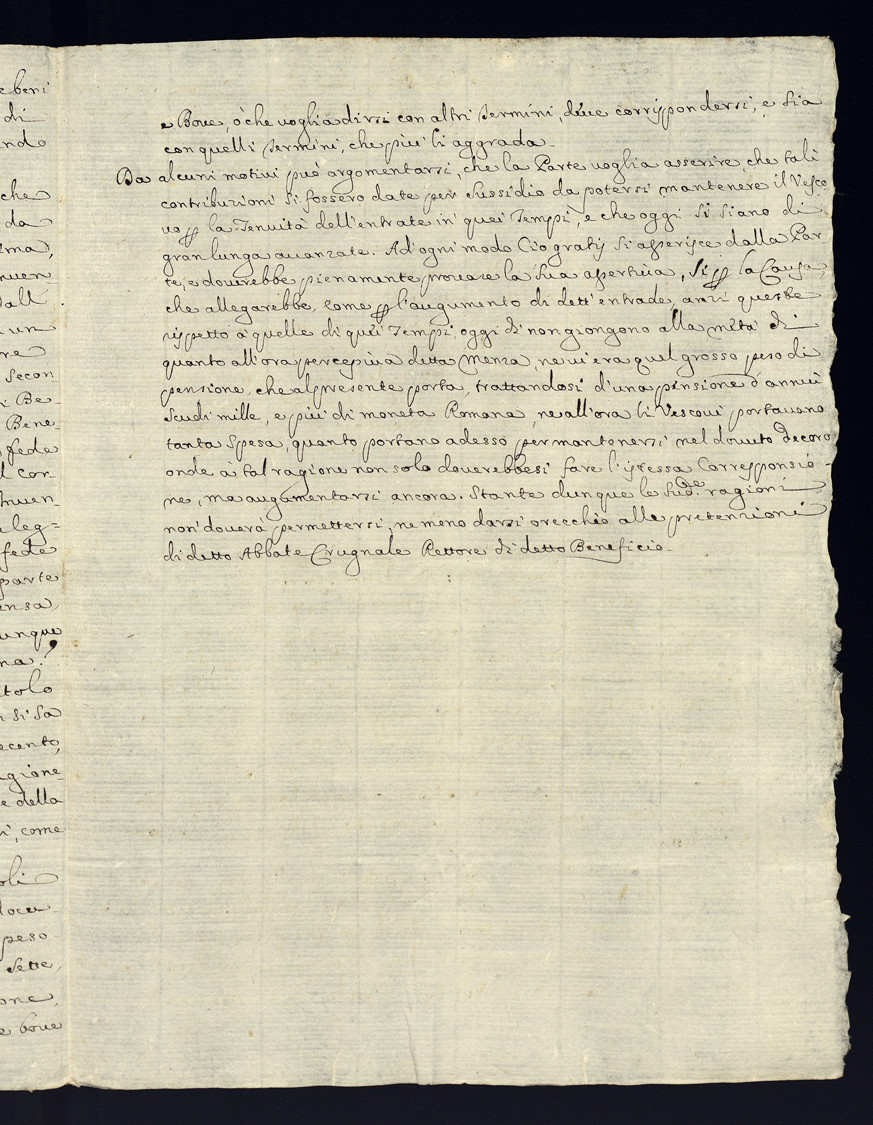 e beni
di
ndo
che
da
ma,
nuen-
dall
un
re
Secon
i Be-
Bene-
fede
l con-
nuen-
leg=
fede
parte
ensa
unque
na.
tolo
n si sa
ecento,
agione-
e della
ri, come
oli
docu-
peso-
sette,
one,
e boue
e Boue, ò che voglia dirsi con altri termini, deue corrispondersi, e sia
con quelli termini, che più li aggrada.
Da alcuni motiui può argomentarsi, che la Parte voglia asserire, che tali
contribuzioni si fossero date per sussidio da potersi mantenere il Vesco
uo p la Tenuità dell'entrate in quei Tempi, e che oggi si siano di
gran lunga auanzate. Ad ogni modo Ciò gratis si asserisce dalla Par
te, e douerebbe pienamente prouare la sua assertiua, si p la Causa,
che allegarebbe, come p l'augumento di dett'entrade, anzi queste
rispetto à quelle di quei Tempi, oggi dì non giongono alla mità di
quanto all'ora percepiua detta Mensa, ne ui era quel grosso peso di
pensione, che al presente porta, trattandosi d'una pensione d'annui
Scudi mille, e più di moneta Romana, ne all'ora li Vescoui portauano
tanta spesa, quanto portano adesso per mantenersi nel douuto decoro
onde à tal ragione non solo douerebbesi fare l'istessa Corresponsio-
ne, ma augumentarsi ancora. Stante dunque le sud.de ragioni
non douerà permettersi, ne meno darsi orecchio alle pretenzioni
di detto Abbate Crugnale Rettore di detto Beneficio.